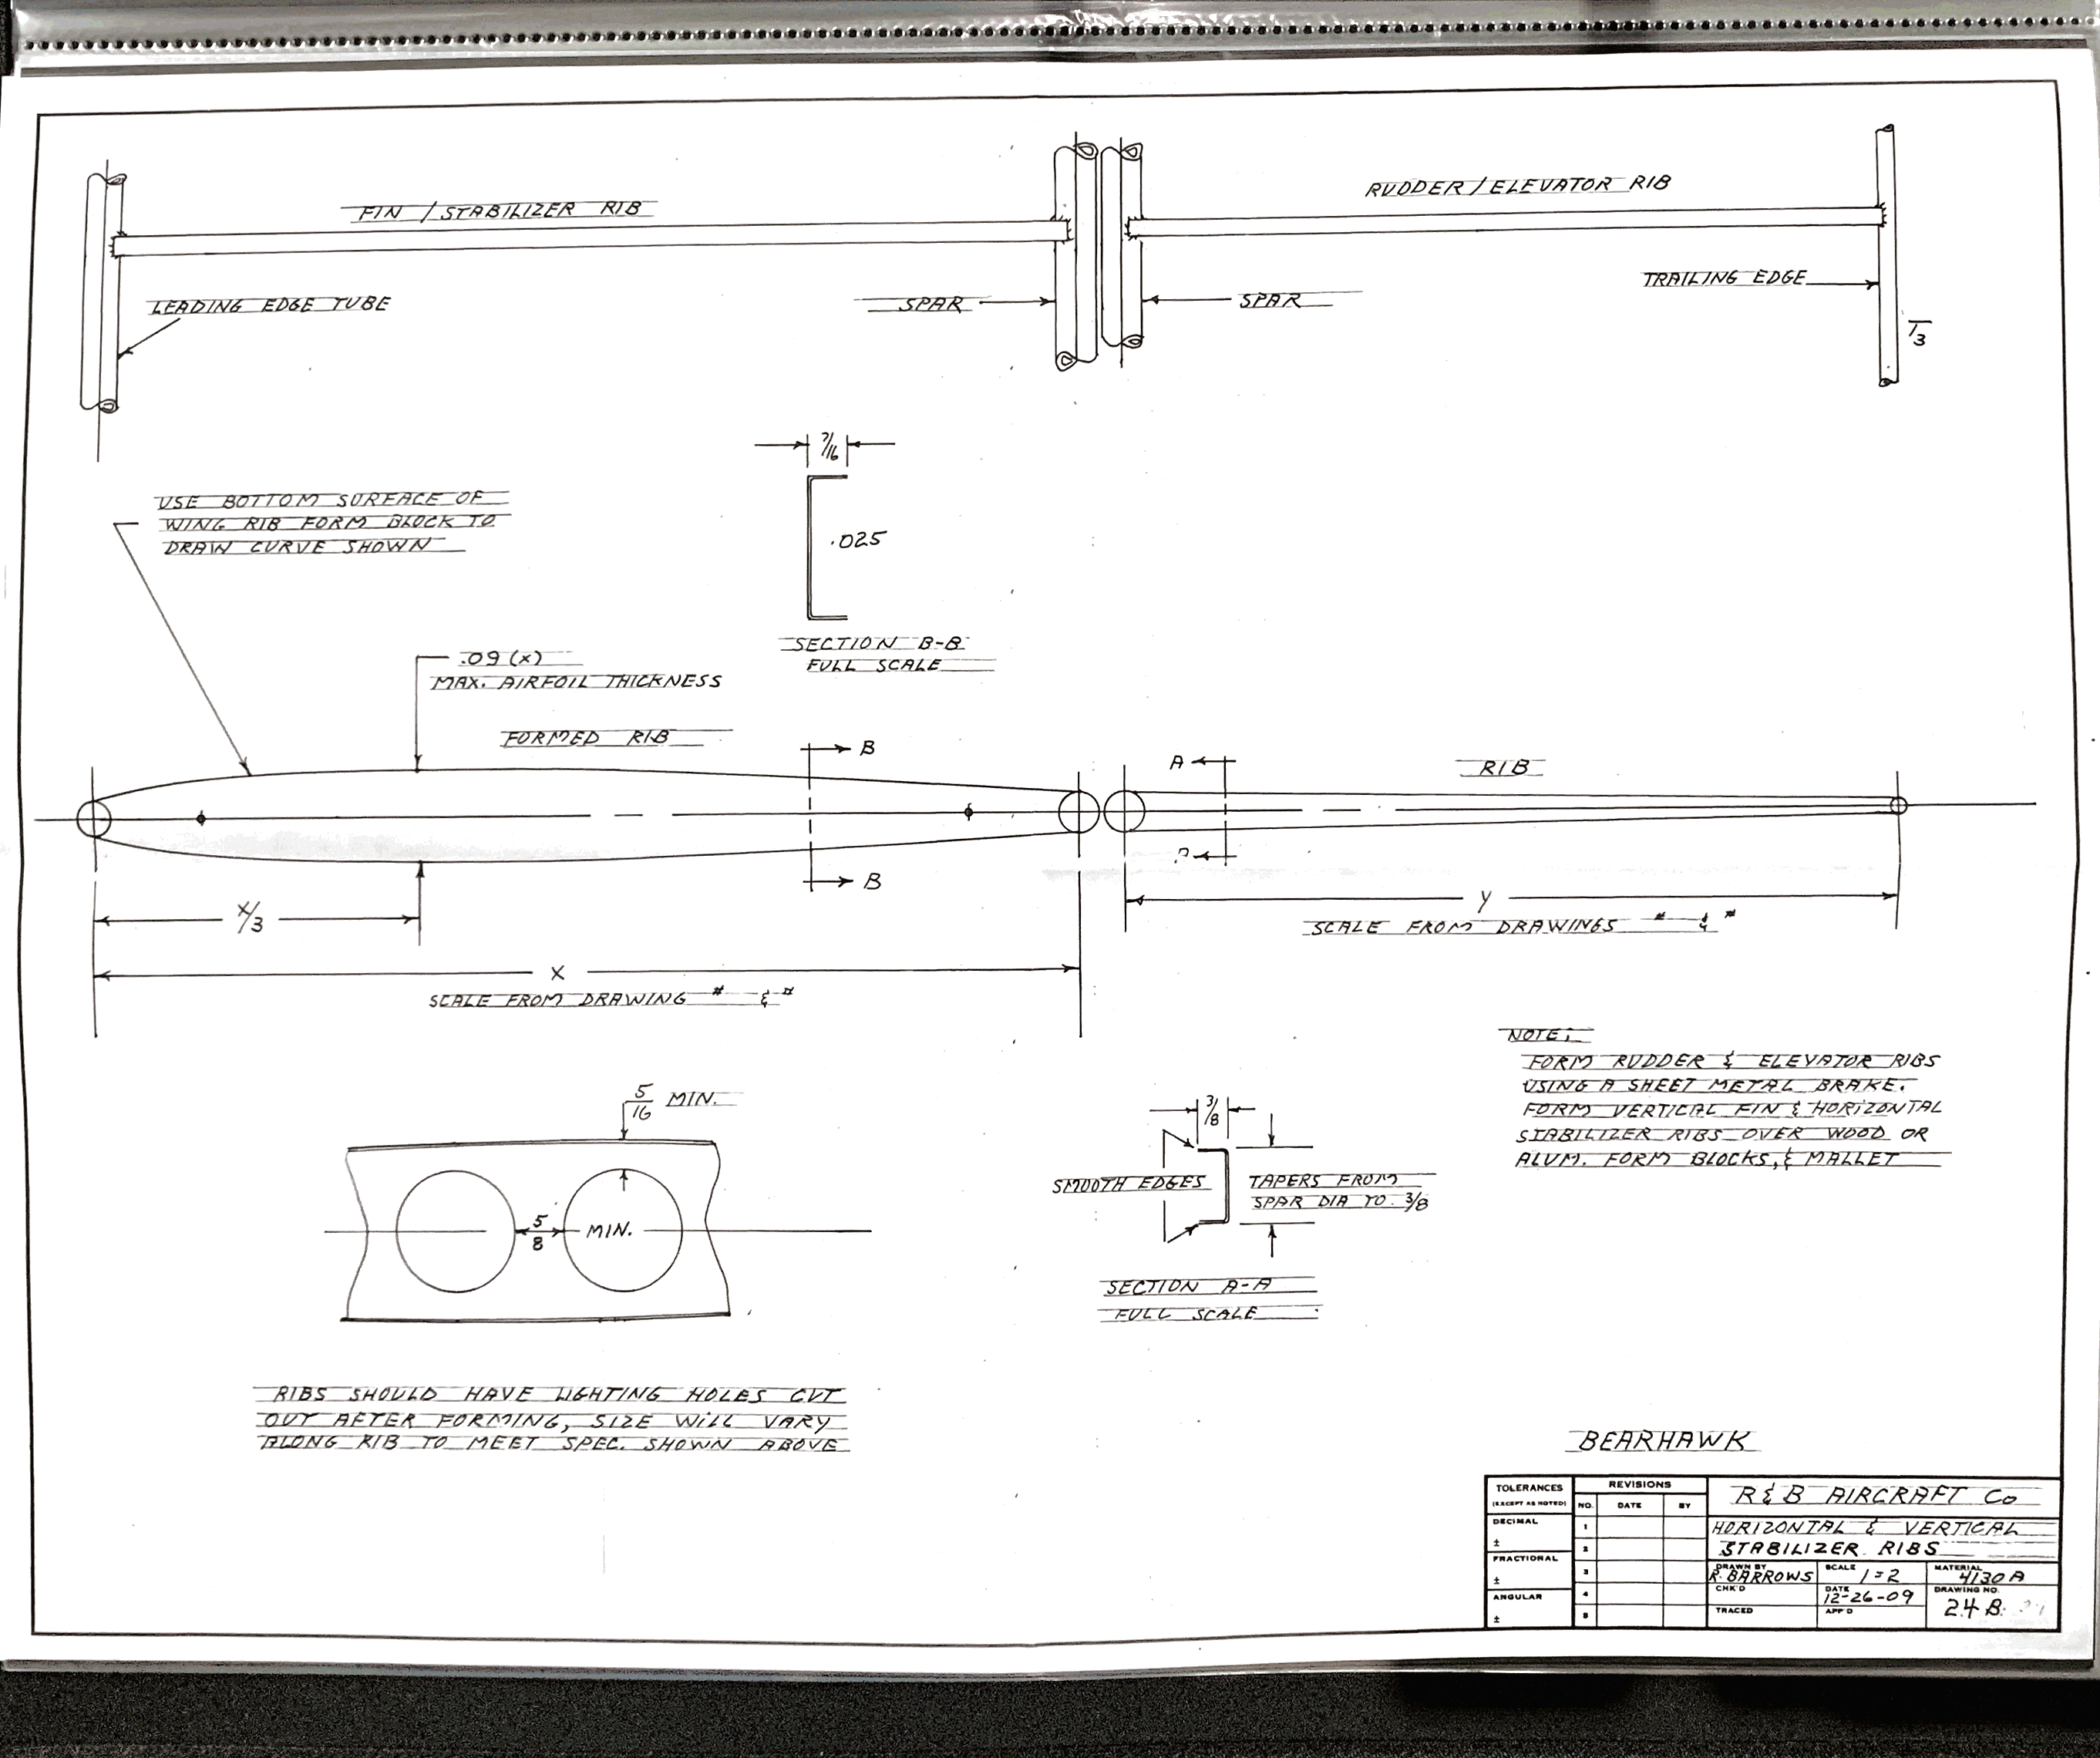 FIN / STABILIZER RIB
RUDDER / ELEVATOR RIB
LEADING EDGE TUBE
SPAR
SPAR
TRAILING EDGE
1/3
7/16
USE BOTTOM SURFACE OF
WING RIB FORM BLOCK TO
DRAW CURVE SHOWN
.025
SECTION B-B
FULL SCALE
.09 (X)
MAX. AIRFOIL THICKNESS
FORMED RIB
B
B
A
RIB
X/3
Y
SCALE FROM DRAWINGS # & #
X
SCALE FROM DRAWING # & #
NOTE;
FORM RUDDER & ELEVATOR RIBS
USING A SHEET METAL BRAKE.
FORM VERTICAL FIN & HORIZONTAL
STABILIZER RIBS OVER WOOD OR
ALUM. FORM BLOCKS, & MALLET
5/16 MIN.
5/8 MIN.
3/8
SMOOTH EDGES
TAPERS FROM
SPAR DIA TO 3/8
SECTION A-A
FULL SCALE
RIBS SHOULD HAVE LIGHTING HOLES CUT
OUT AFTER FORMING, SIZE WILL VARY
ALONG RIB TO MEET SPEC. SHOWN ABOVE
BEARHAWK
TOLERANCES
(EXCEPT AS NOTED)
DECIMAL
±
FRACTIONAL
±
ANGULAR
±
REVISIONS
NO. DATE BY
1
2
3
4
5
R & B AIRCRAFT Co
HORIZONTAL & VERTICAL
STABILIZER RIBS
DRAWN BY R. BARROWS
SCALE 1=2
MATERIAL 4130 A
CHK'D
DATE 12-26-09
DRAWING NO. 24 B
TRACED
APP'D